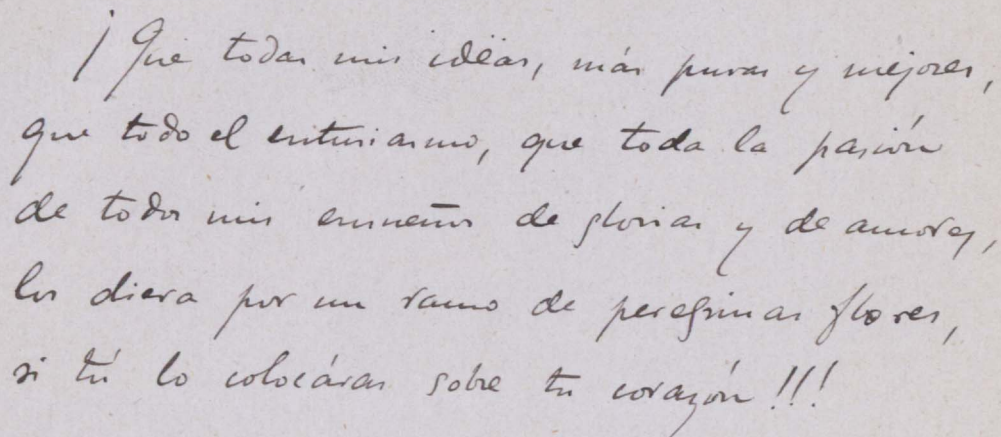 ¡Que todas mis idéas, más puras y mejores,
que todo el entusiasmo, que toda la pasión
de todos mis ensueños de glorias y de amores,
los diera por un ramo de peregrinas flores,
si tú lo colocáras sobre tu corazón!!!